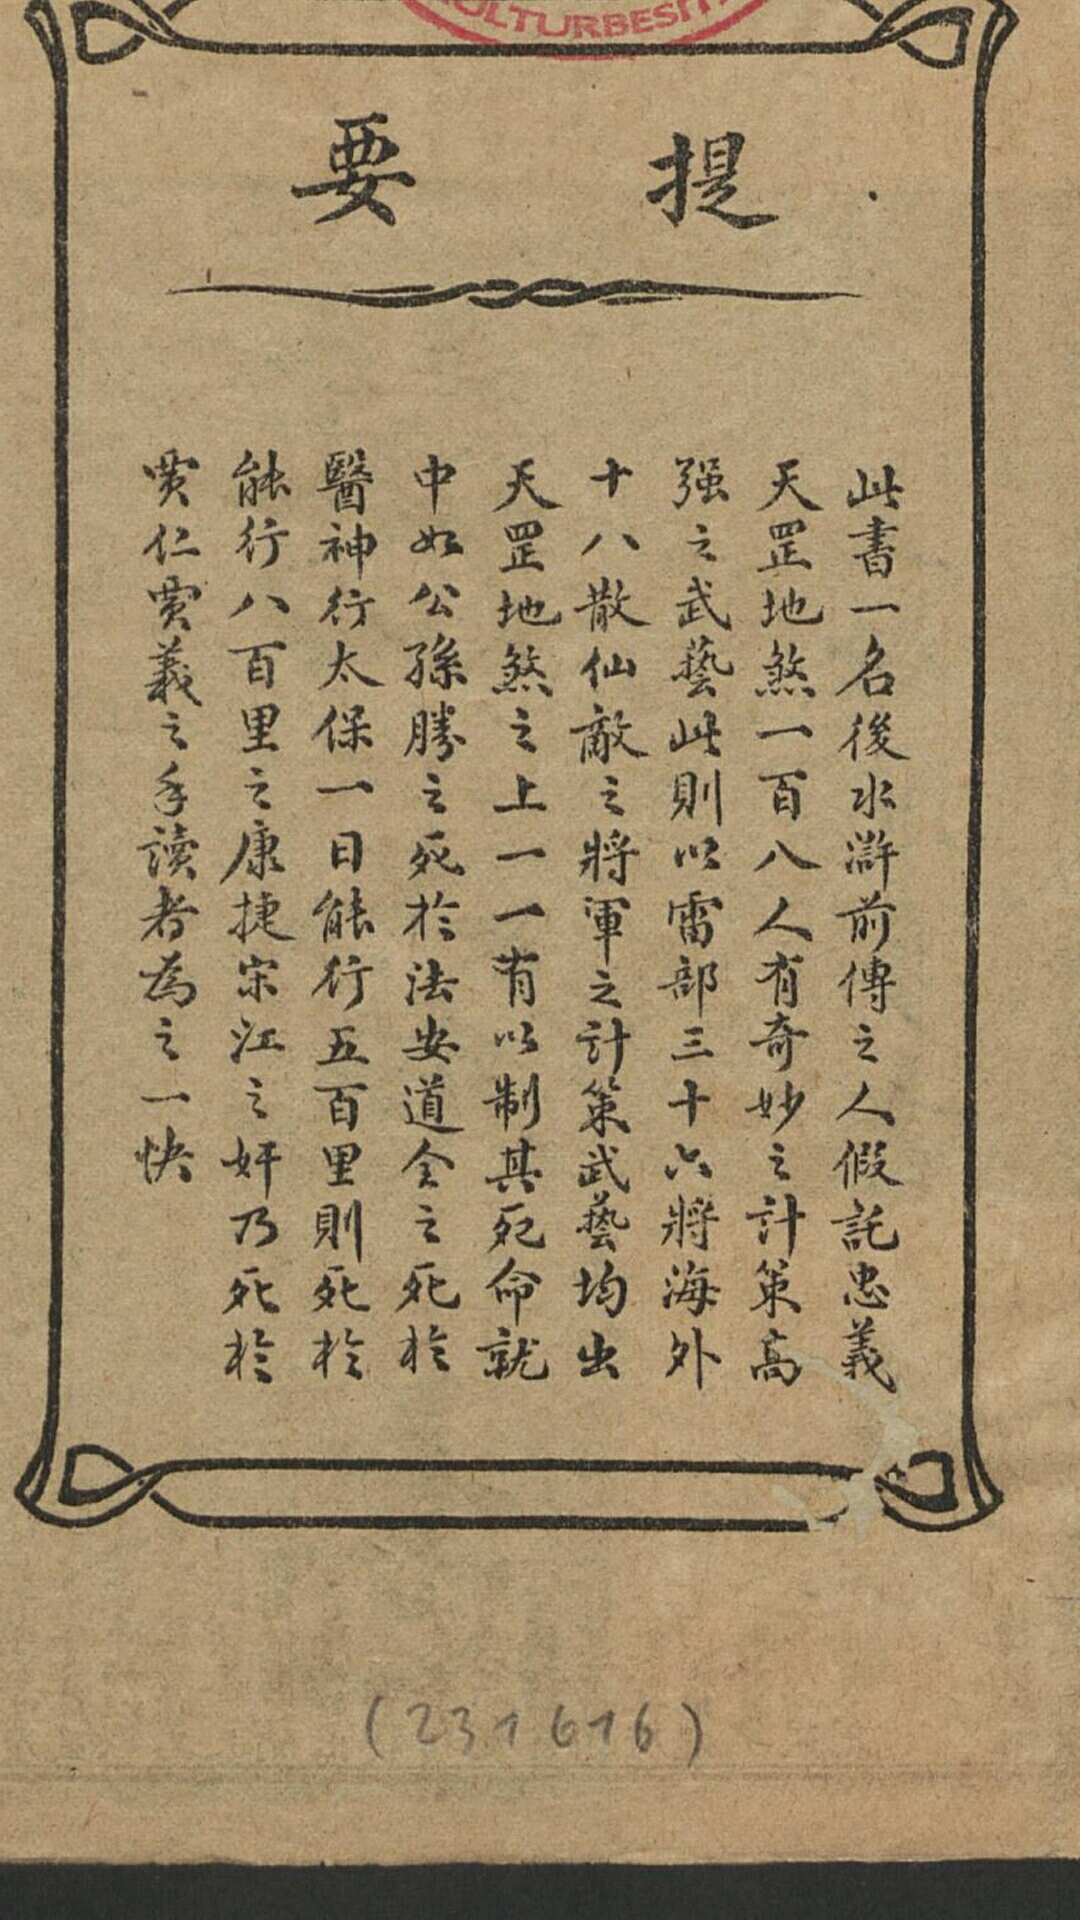 KULTURBESITZ
提要
此書一名後水滸前傳之人假託忠義
天罡地煞一百八人有奇妙之計策高
强之武藝此則以雷部三十六將海外
十八散仙敵之將軍之計策武藝均出
天罡地煞之上一一有以制其死命就
中如公孫勝之死於法安道全之死於
醫神行太保一日能行五百里則死於
能行八百里之康捷宋江之奸乃死於
賈仁賈義之手讀者為之一快
(231616)